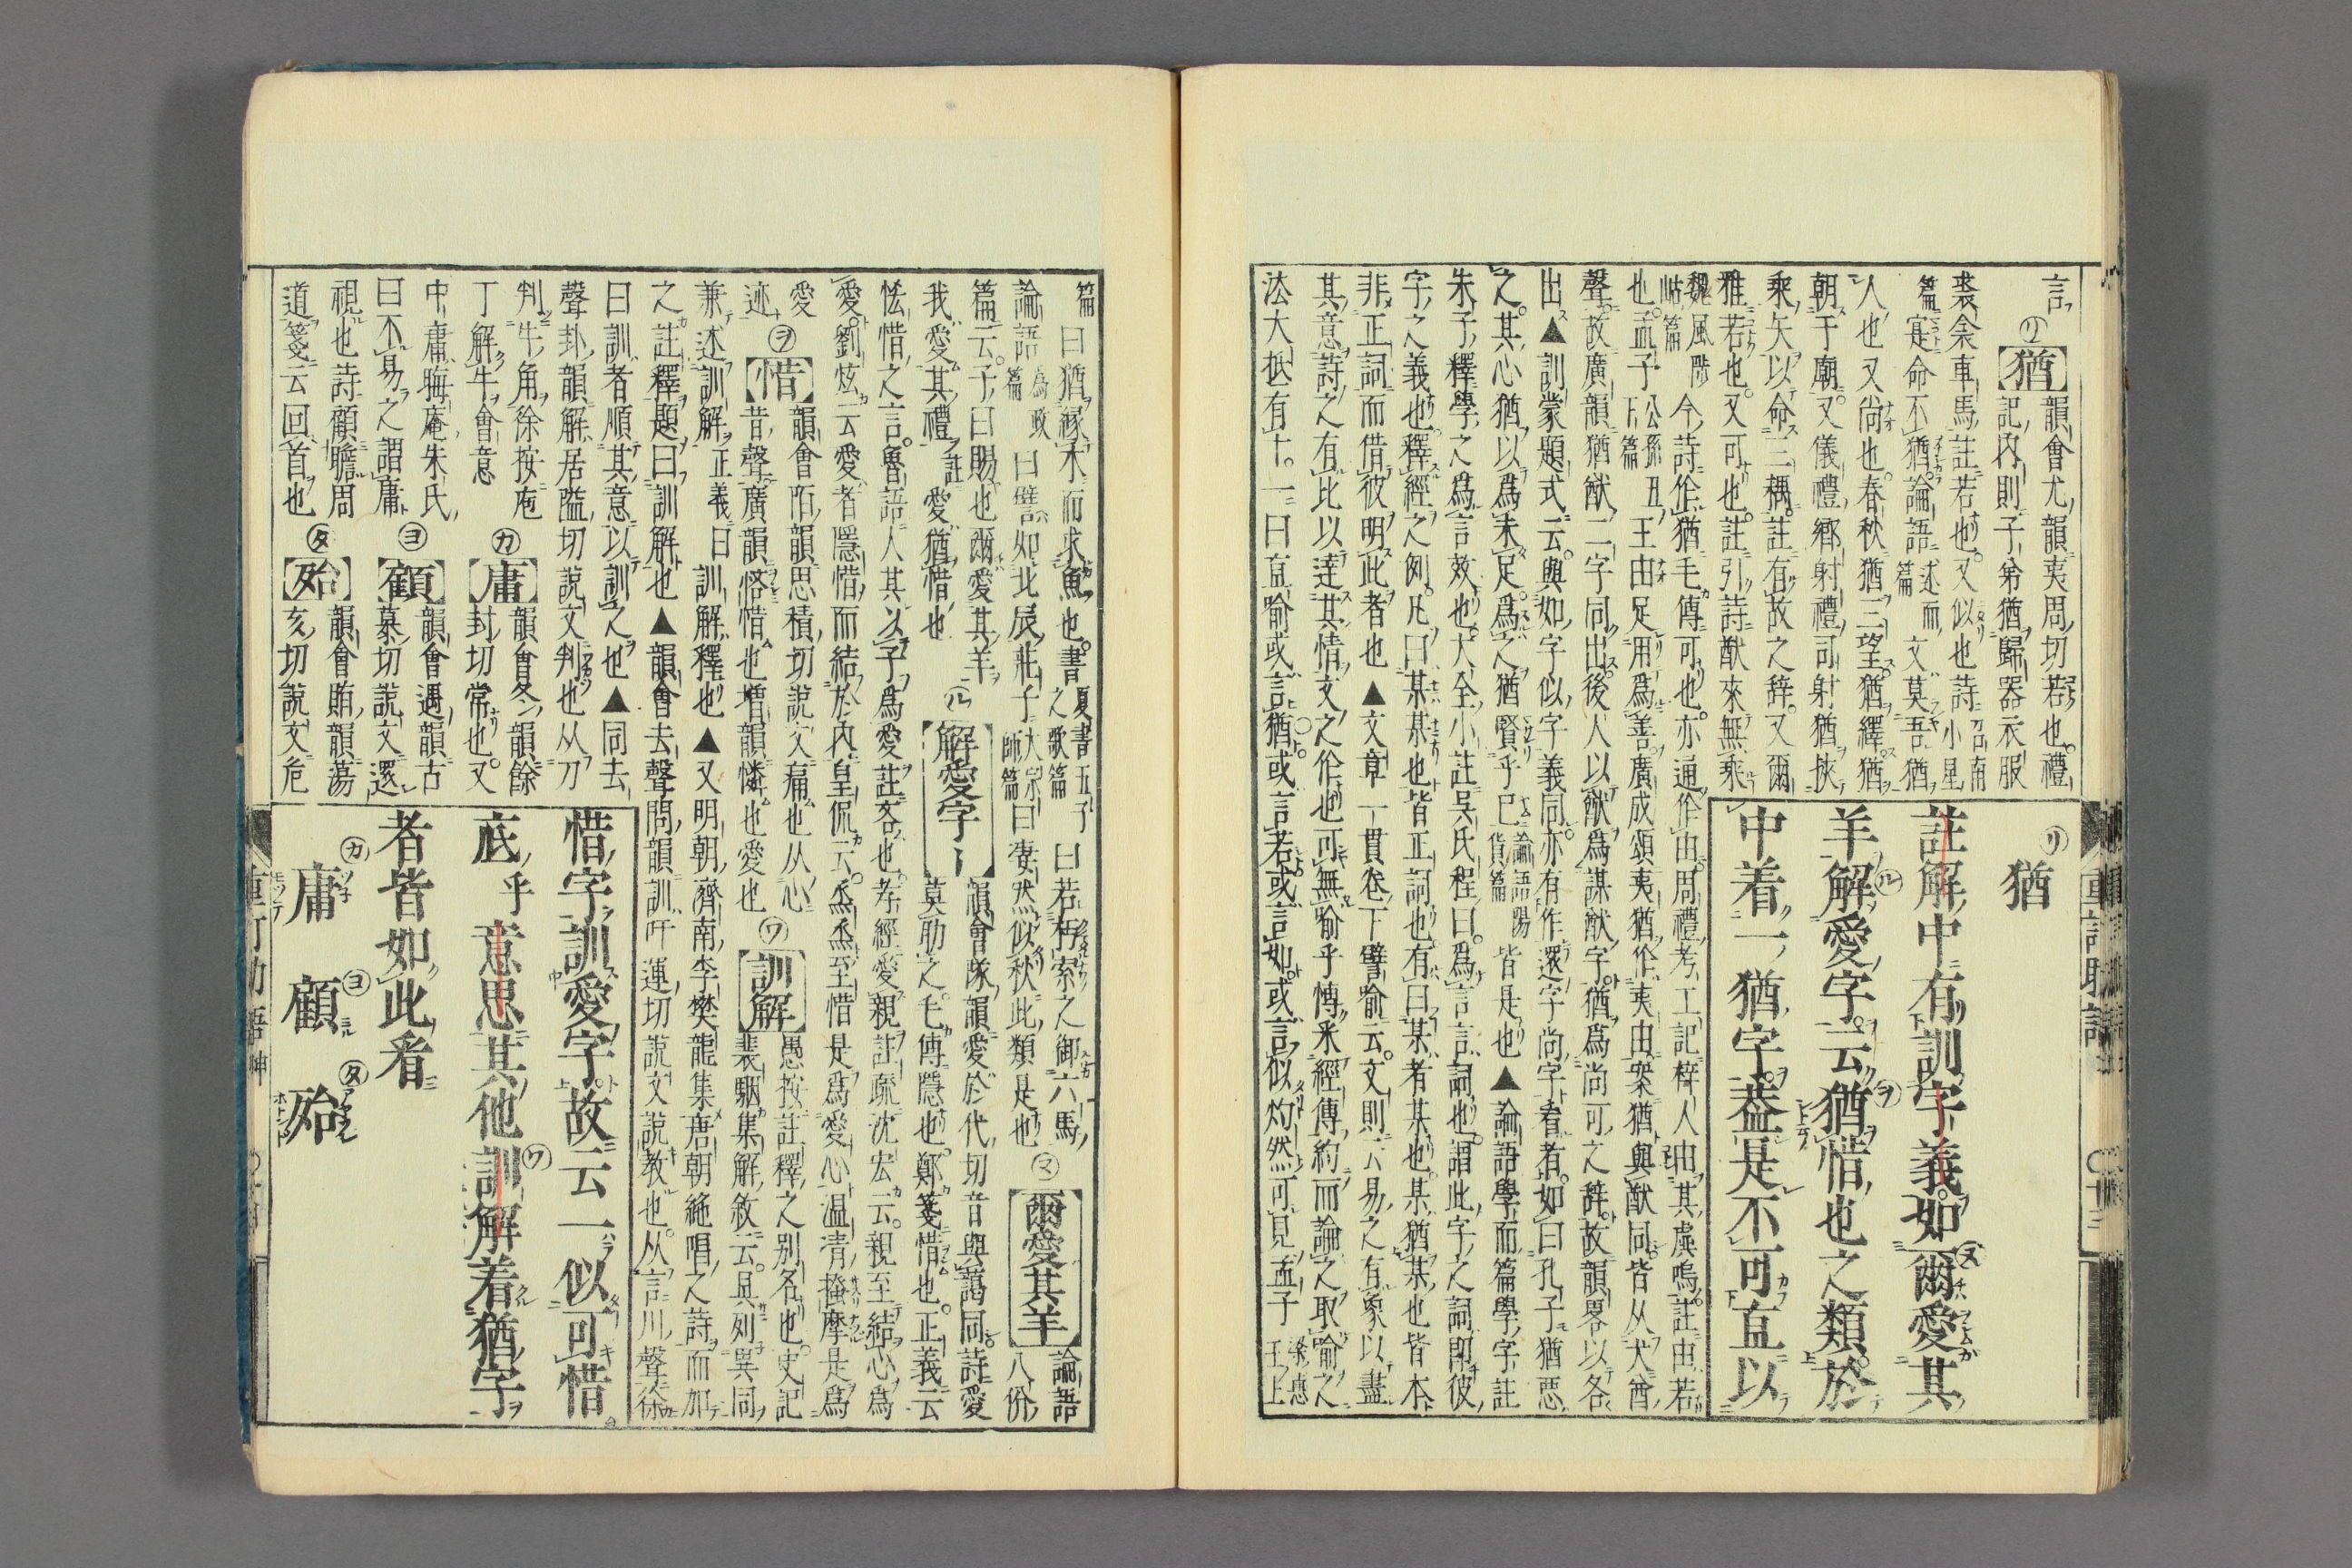 言㋷【猶】韻會尤韻夷周切若也禮
記內則子弟猶歸器衣服
裘衾車馬註若也又似也詩召南小星
篇寔命不猶論語述而篇文莫吾猶
人也又尚也春秋猶三望猶繹猶
朝于廟又儀禮鄉射禮司射猶挾
乘矢以命三耦註有故之辭又爾
雅若也又可也註引詩猷來無乘
魏風陟岵篇今詩作猶毛傳可也亦通作由周禮考工記梓人由其虡鳴註由若
也孟子公孫丑下篇王由足用爲善廣成頌夷猶作夷由案猶與猷同皆从犬酋
聲故廣韻猶猷二字同出後人以猷爲謀猷字猶爲尚可之辭故韻畧以各
出▲訓蒙題式云與如字似字義同亦有作還字尚字看者如曰孔子猶惡
之其心猶以爲未足爲之猶賢乎已論語陽貨篇皆是也▲論語學而篇學字註
朱子釋學之爲言效也大全小註吳氏程曰爲言言詞也謂此字之詞卽彼
字之義也釋經之例凡曰某某也皆正詞也有曰某者某也某猶某也皆本
非正詞而借彼明此者也▲文章一貫卷下譬喻云文則云易之有象以盡
其意詩之有比以達其情文之作也可無喻乎博釆經傳約而論之取喻之
法大抵有十一曰直喻或言猶或言若或言如或言似灼然可見孟子梁惠王上
㋷猶
註解中有訓字義如爾愛其
羊解愛字云猶惜也之類於
中着一猶字葢是不可直以
篇曰猶緣木而求魚也書夏書五子之歌篇曰若朽索之御六馬
論語爲政篇曰譬如北辰莊子大宗師篇曰凄然似秋此類是也㋦【爾愛其羊】論語八佾
篇云子曰賜也爾愛其羊㋸【解愛字】韻會隊韻愛於代切音與藹同詩愛
我愛其禮註愛猶惜也莫助之毛傳隱也鄭箋惜也正義云
怯惜之言魯語人其以子爲愛註吝也孝經愛親註疏沈宏云親至結心爲
愛劉炫云愛者隱惜而結於內皇侃云烝烝至惜是爲愛心溫凊搔摩是爲
愛迹㋾【惜】韻會陌韻思積切說文痛也从心
昔聲廣韻悋惜也增韻憐也愛也㋻【訓解】愚按註釋之別名也史記
裴駰集解敘云具列異同
兼述訓解正義曰訓解釋也▲又明朝濟南李樊龍集唐朝絶唱之詩而加
之註釋題曰訓解也▲韻會去聲問韻訓吁運切說文說教也从言川聲徐
曰訓者順其意以訓之也▲同去
聲卦韻解居隘切說文判也从刀
判牛角徐按庖
丁解牛會意㋕【庸】韻會冬韻餘
封切常也又
中庸晦庵朱氏
曰不易之謂庸㋵【顧】韻會遇韻古
慕切說文還
視也詩顧瞻周
道箋云回首也㋟【殆】韻會賄韻蕩
亥切說文危
惜字訓愛字故云一似可惜
底乎意思其他訓解着猶字
者皆如此看
㋕庸 ㋵顧 ㋟殆